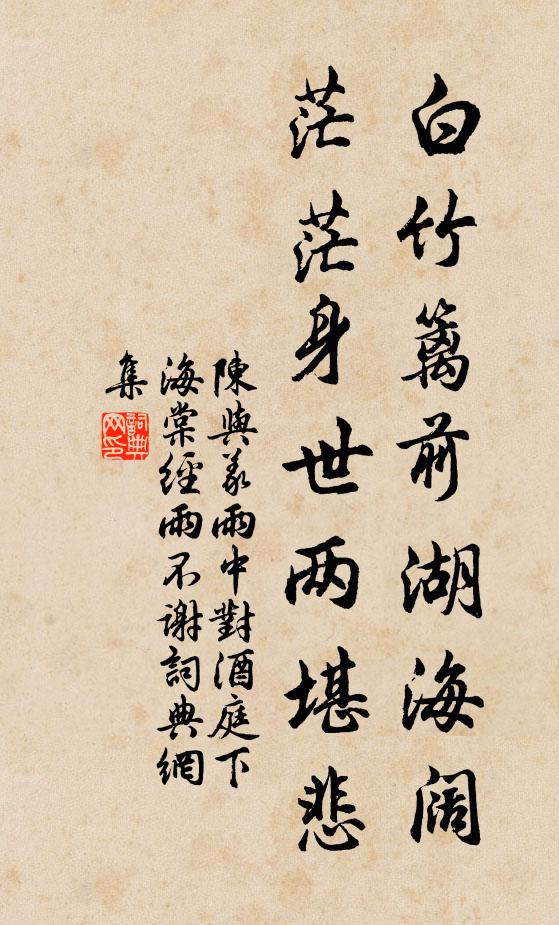 白竹篱前湖海阔
茫茫身世两堪悲
陳與義雨中對酒庭下
海棠經雨不谢詞典網
集
詞典
网印